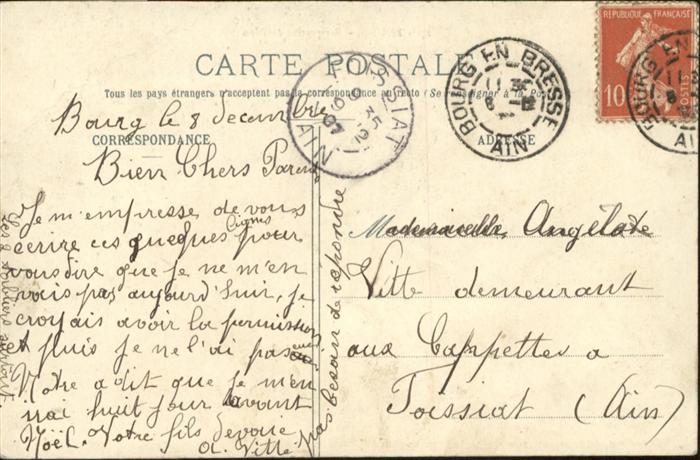 CARTE POSTALE
Tous les pays étrangers n'acceptent pas la correspondance au recto (Se renseigner à la Poste)
CORRESPONDANCE
ADRESSE
Bourg le 8 decembre
Bien Chers Parents
Je m'empresse de vous
écrire ces quelques lignes pour
vous dire que je ne m'en
vais pas aujourd'huir, je
croyais avoir la permission
et puis je ne l'ai pas eue
Votre a dit que je m'en
nai huit jour avant
Noël. Votre fils devoué
A. Vitte
pas besoin de repondre
Mademoiselle Angèle
Vitte demeurant
aux Cappettes a
Tossiat (Ain)
BOURG EN BRESSE
AIN
TOSSIAT
AIN
REPUBLIQUE FRANÇAISE
10
POSTES